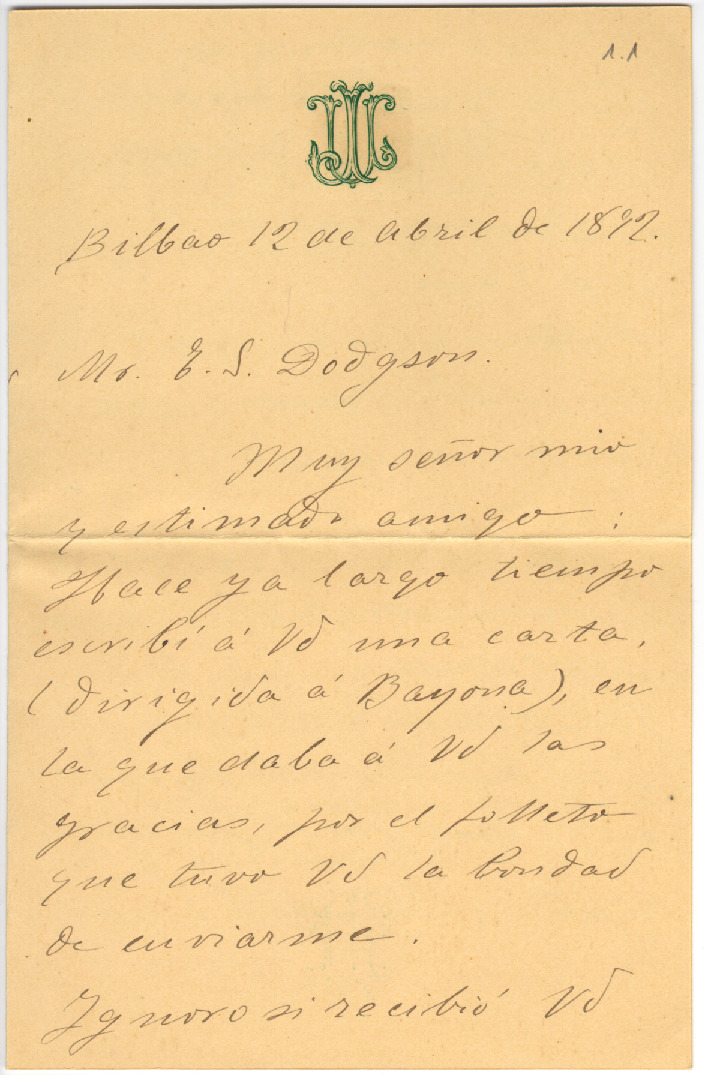 1.1
Bilbao 12 de Abril de 1892.
Mr. E. S. Dodgson.
Muy señor mio
y estimado amigo :
Hace ya largo tiempo
escribí á Vd una carta,
(dirigida á Bayona), en
la que daba á Vd las
gracias, por el folleto
que tuvo Vd la bondad
de enviarme.
Ignoro si recibió Vd